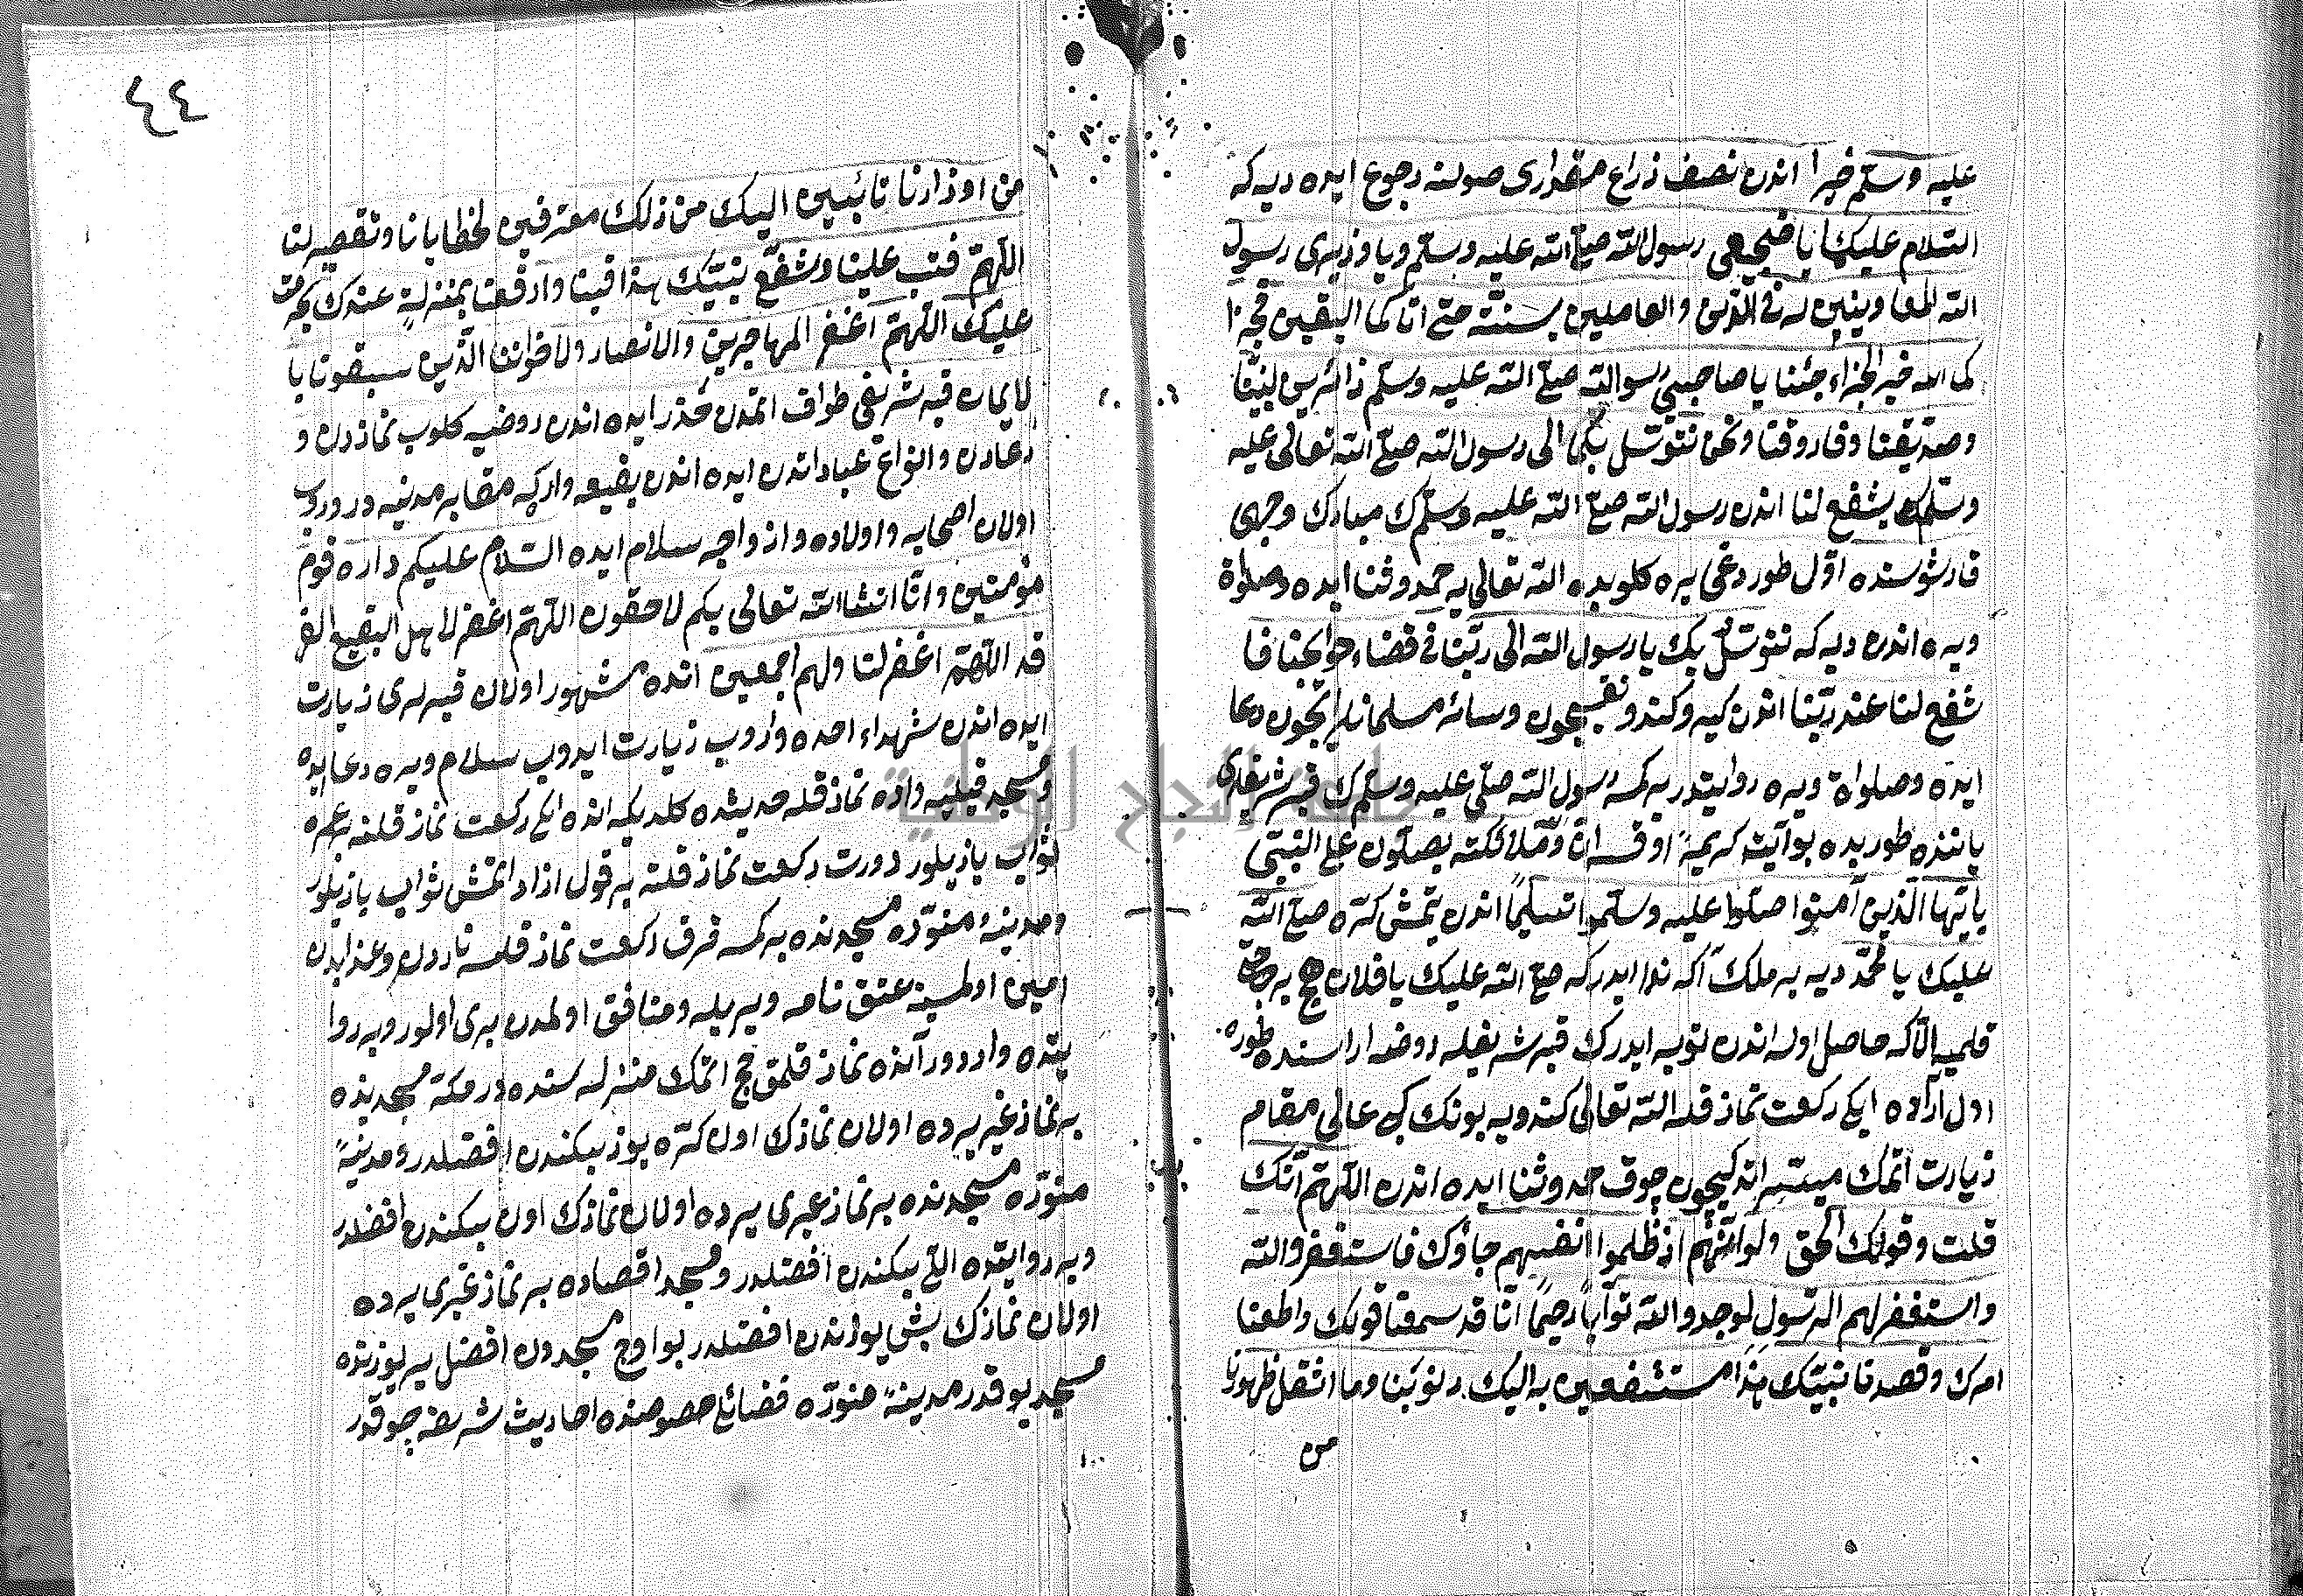 عليه وسلم خيرا اندن نصف ذراع مقدارى صولنه رجوع ايده ديه كه
السلام عليكما يا ضجيعى رسول الله صلى الله عليه وسلم ويا وزيرى رسول
الله المعاونين له فى الدين والعاملين بسنته حتى اتاكما اليقين فجزا
كما الله خير الجزاء جئنا يا صاحبى رسول الله صلى الله عليه وسلم زائرين لنبينا
وصديقنا وفاروقنا ونحن نتوسل بكما الى رسول الله صلى الله تعالى عليه
وسلم يشفع لنا اندن رسول الله صلى الله عليه وسلمك مبارك وجهى
قارشوسنده اول طوردغى يره كلوبده الله تعالى يه حمد وثنا ايده وصلواة
ويره اندن ديه كه نتوسل بك يا رسول الله الى ربنا فى قضاء حوايجنا فا
شفع لنا عند ربنا اندن كيرو كندو نفسيچون وسائر مسلمانلر ايچون دعا
ايده وصلواة ويره روايتدر بر كمسه رسول الله صلى عليه وسلمك قبر شريفلرى
ياننده طوريده بو آيت كريمۀ اوقسه ان وملائكته يصلون على النبى
يا ايها الذين آمنوا صلوا عليه وسلموا تسليما اندن يتمش كره صلى الله
عليك يا محمد ديه بر ملك اكه ندا ايدركه صلى الله عليك يا فلان هيچ بر حاجت
قلميه الا كه حاصل اوله اندن توبه ايدرك قبر شريفله روضه اراسنده طوره
اول آراده ايكى ركعت نماز قله الله تعالى كندويه بونك كبى عالى مقام
زيارت اتمك ميسر اتدكيچون چوق حمد وثنا ايده اندن اللهم انك
قلت وقولك الحق ولو انهم اذ ظلموا انفسهم جاؤك فاستغفروا الله
واستغفر لهم الرسول لوجدوا الله توابا رحيما انا قد سمعنا قولك واطعنا
امرك وقصدنا نبيك هذا مستشفعين به اليك ذنوبنا وما اثقل ظهورنا
من
٤٤
من اوزارنا تائبين اليك من ذلك معترفين لخطايانا وتقصيرلنا
اللهم فتب علينا وشفع بنبيك هذا فينا وارفعنا بمنزلته عندك بحرمت
عليك اللهم اغفر المهاجرين والانصار ولاخواننا الذين سبقونا با
لايمان قبر شريفى طواف اتمدن حذر ايده اندن روضيه كلوب نمازدن و
دعادن وانواع عباداتدن ايده اندن بقيعه وارکه مقابر مدينه در وربو
اولان اصحابه واولاده وازواجه سلام ايده السلام عليكم داره قوم
مؤمنين وانا انشاالله تعالى بكم لاحقون اللهم اغفر لاهل البقيع الغر
قد اللهم اغفر لنا ولهم اجمعين انده مشهور اولان قبرلرى زيارت
ايده اندن شهداء احده واروب زيارت ايدوب سلام ويره دعا ايده
ومسجد قبليه واره نماز قله حديثده كلديكه انده ايكى ركعت نماز قلنه بر عمره
ثواب يازيلور دورت ركعت نماز قلنه بر قول ازاد اتمش ثواب يازيلور
ومدينۀ منوره مسجدنده بر كمسه قرق ركعت نماز قلسه ناردن وعذابدن
امين اولمسنه عتق نامه ويريله ومنافق اولمدن برى اولور وبر روا
يتده واردور آنده نماز قلمق حج اتمك منزله سنده در مكه مسجدنده
بر نماز غير يرده اولان نمازك اول كره يوز بيكندن افضلدر ومدينۀ
منوره مسجدنده بر نماز غيرى يرده اولان نمازك اون بيكندن افضلدر
وبر روايتده اللى بيكندن افضلدر ومسجد اقصاده بر نماز غيرى يرده
اولان نمازك بش يوزندن افضلدر بو اوچ مسجددن افضل ير يوزنده
مسجد يوقدر مدينۀ منوره فضائلى خصوصنده احاديث شريفه چوقدر